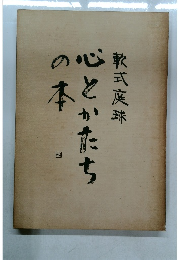 軟式庭球
心とかたち
の本